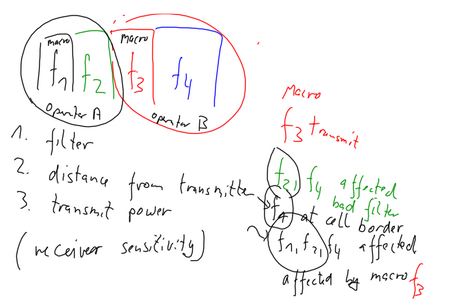 macro macro
f1 f2 f3 f4
operator A operator B
1. filter
2. distance from transmitter
3. transmit power
(receiver sensitivity)
Macro
f3 transmit
f2, f4 affected
bad filter
at cell border
f1, f2, f4 affected
affected by macro f3